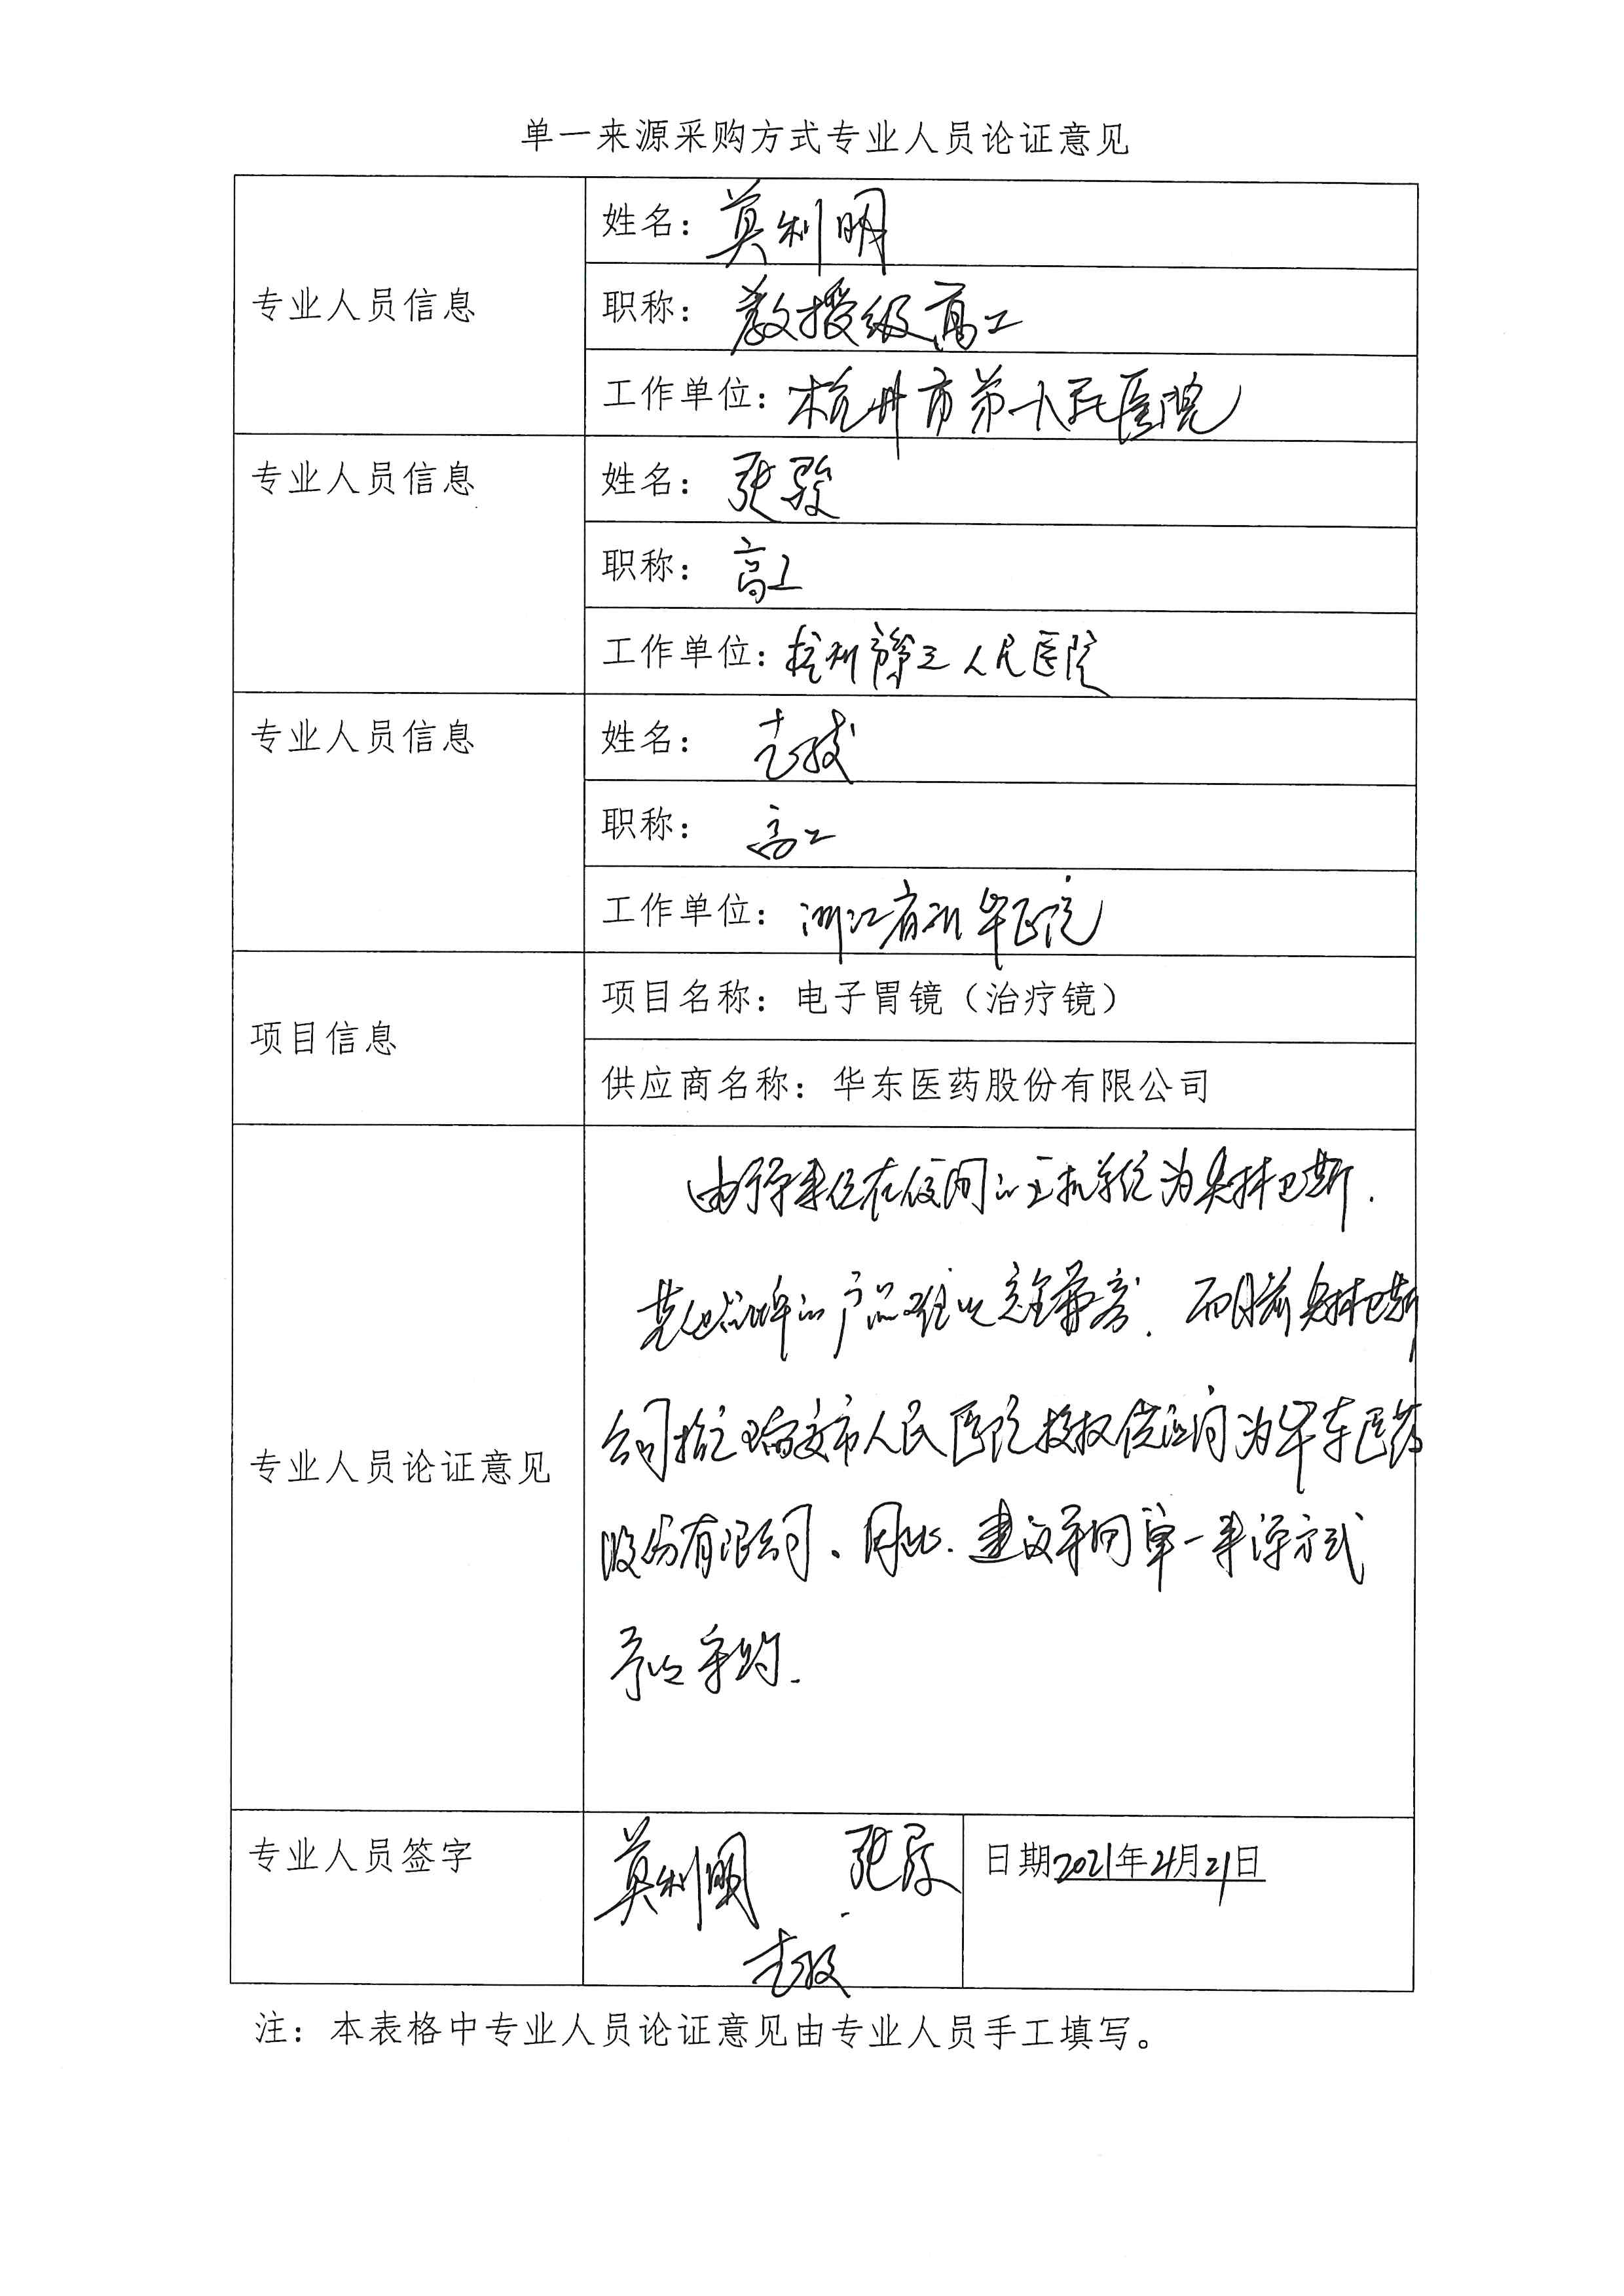 单一来源采购方式专业人员论证意见
专业人员信息
姓名：莫利明
职称：教授级高工
工作单位：杭州市第一人民医院
专业人员信息
姓名：张骏
职称：高工
工作单位：杭州市第三人民医院
专业人员信息
姓名：
职称：高工
工作单位：浙江省新华医院
项目信息
项目名称：电子胃镜（治疗镜）
供应商名称：华东医药股份有限公司
专业人员论证意见
由于采购单位在使用的主机系统为奥林巴斯.
其他品牌的产品难以完全兼容. 而目前奥林巴斯
公司指定瑞安市人民医院授权供应商为华东医药
股份有限公司。因此. 建议采用单一来源方式
予以采购.
专业人员签字
莫利明 张骏
日期2021年4月21日
注：本表格中专业人员论证意见由专业人员手工填写。